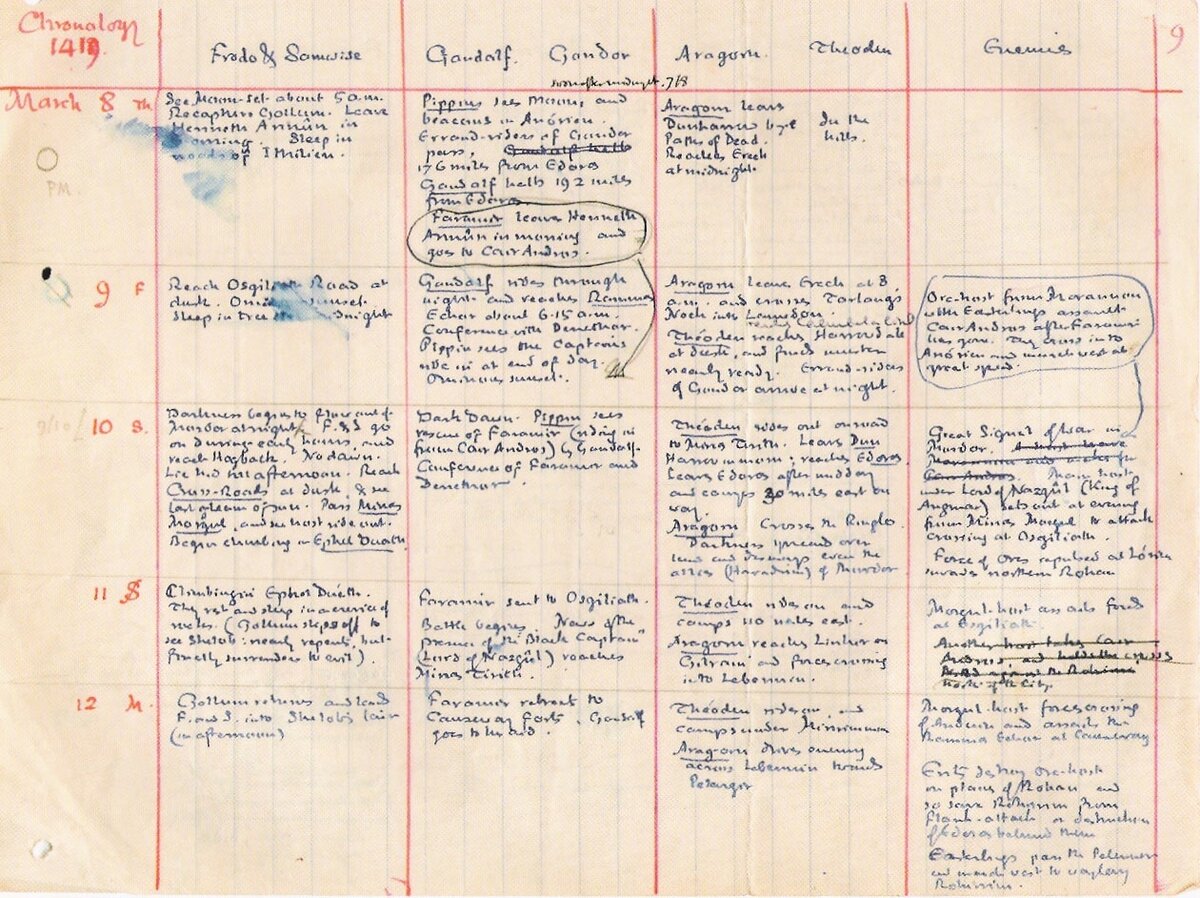 Chronology
1419
Frodo & Samwise
Gandalf. Gondor
Aragorn. Theoden
Enemies
9
March 8 Th.
PM.
See Moon-set about 5 a.m.
Recapture Gollum. Leave
Henneth Annûn in
morning. Sleep in
woods of Ithilien.
7/8
Pippin sees Moon, and
beacons in Anórien.
Errand-riders of Gondor
pass, Gandalf halts
176 miles from Edoras
Gandalf halts 192 miles
from Edoras
Faramir leaves Henneth
Annûn in morning and
goes to Cair Andros.
Aragorn leaves
Dunharrow by
Paths of Dead.
Reaches Erech
at midnight.
In the
hills.
9 F
Reach Osgiliath Road at
dusk. sunset.
Sleep in tree midnight
Gandalf rides through
night and reaches Rammas
Echor about 6.15 a.m.
Conference with Denethor.
Pippin sees the Captains
ride in at end of day.
Ominous sunset.
Aragorn leaves Erech at 8
a.m. and crosses Tarlang's
Neck into Lamedon.
Théoden reaches Harrowdale
at dusk, and finds muster
nearly ready. Errand-riders
of Gondor arrive at night.
Orc-host from Morannon
with Easterlings assault
Cair Andros after Faramir
has gone. They cross into
Anórien and march west at
great speed.
9/10
10 S.
Darkness begins to flow out of
Mordor at night. F. & S. go
on during early hours, and
reach Hogback. No dawn.
Lie hid till afternoon. Reach
Cross-Roads at dusk, & see
last gleam of sun. Pass Minas
Morgul, and see host ride out.
Begin climbing in Ephel Duath.
Dark Dawn. Pippin sees
rescue of Faramir (riding in
from Cair Andros) by Gandalf.
Conference of Faramir and
Denethor.
Théoden rides out on road
to Minas Tirith. Leaves Dun
Harrow in morn; reaches Edoras
Leaves Edoras after midday
and camps 30 miles east on
way.
Aragorn Crosses the Ringlo.
Darkness spreads over
land and dismays even the
allies (Haradrim) of Mordor
Great Signal of War in
Mordor.
Cair Andros. Main host
under Lord of Nazgûl (King of
Angmar) sets out at evening
from Minas Morgul to attack
crossing at Osgiliath.
Force of Orcs repulsed at Lórien
invades northern Rohan
11 S
Climbing in Ephel Dúath.
They rest and sleep in a crevice of
rocks. (Gollum steps off to
see Shelob: nearly repents, but
finally surrenders to evil).
Faramir sent to Osgiliath.
Battle begins. News of the
presence of the "Black Captain"
(Lord of Nazgûl) reaches
Minas Tirith.
Théoden rides on and
camps 110 miles east.
Aragorn reaches Linhir on
Gilrain and forces crossing
into Lebennin.
Morgul-host assails fords
at Osgiliath.
Another host takes Cair
Andros, and holds the crossing
Road against the Rohirrim
North of the City.
12 M.
Gollum returns and leads
F. and S. into Shelob's lair
(in afternoon)
Faramir retreats to
Causeway Forts. Gandalf
goes to his aid.
Théoden rides on, and
camps under Minrimmon
Aragorn drives enemy
across Lebennin towards
Pelargir
Morgul-host forces crossing
of Anduin and assails the
Rammas Echor at Causeway
Ents destroy orc-host
on plains of Rohan and
so save Rohirrim from
flank-attack or destruction
of Edoras behind them
Easterlings pass the Pelennor
and march west to waylay
Rohirrim.